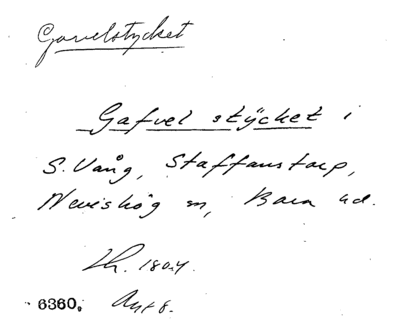 Gavelstycket
Gafvel stycket i
S. Vång, Staffanstorp,
Nevishög sn, Bara hd.
Lh. 1804.
6360. Akt 8.